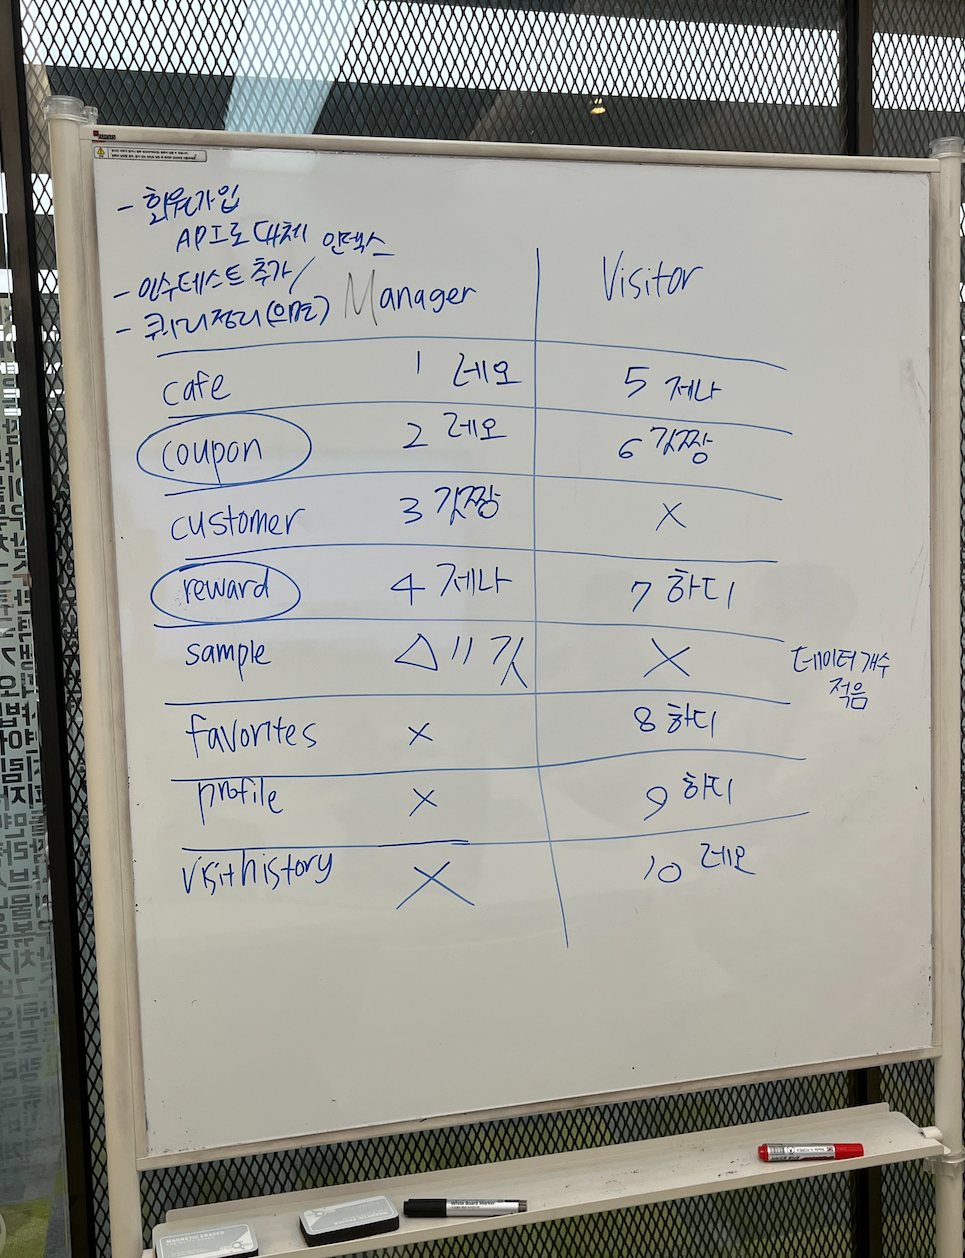 - 회원가입
API로 대체
인덱스
- 인수테스트 추가/
- 쿼리정리(의도)
Manager
Visitor
cafe 1 레오 5 제나
coupon 2 레오 6 깃짱
customer 3 깃짱 X
reward 4 제나 7 하디
sample △ 11 깃 X
데이터개수
적음
favorites X 8 하디
profile X 9 하디
visithistory X 10 레오
White Board Marker
MAGNETIC ERASER